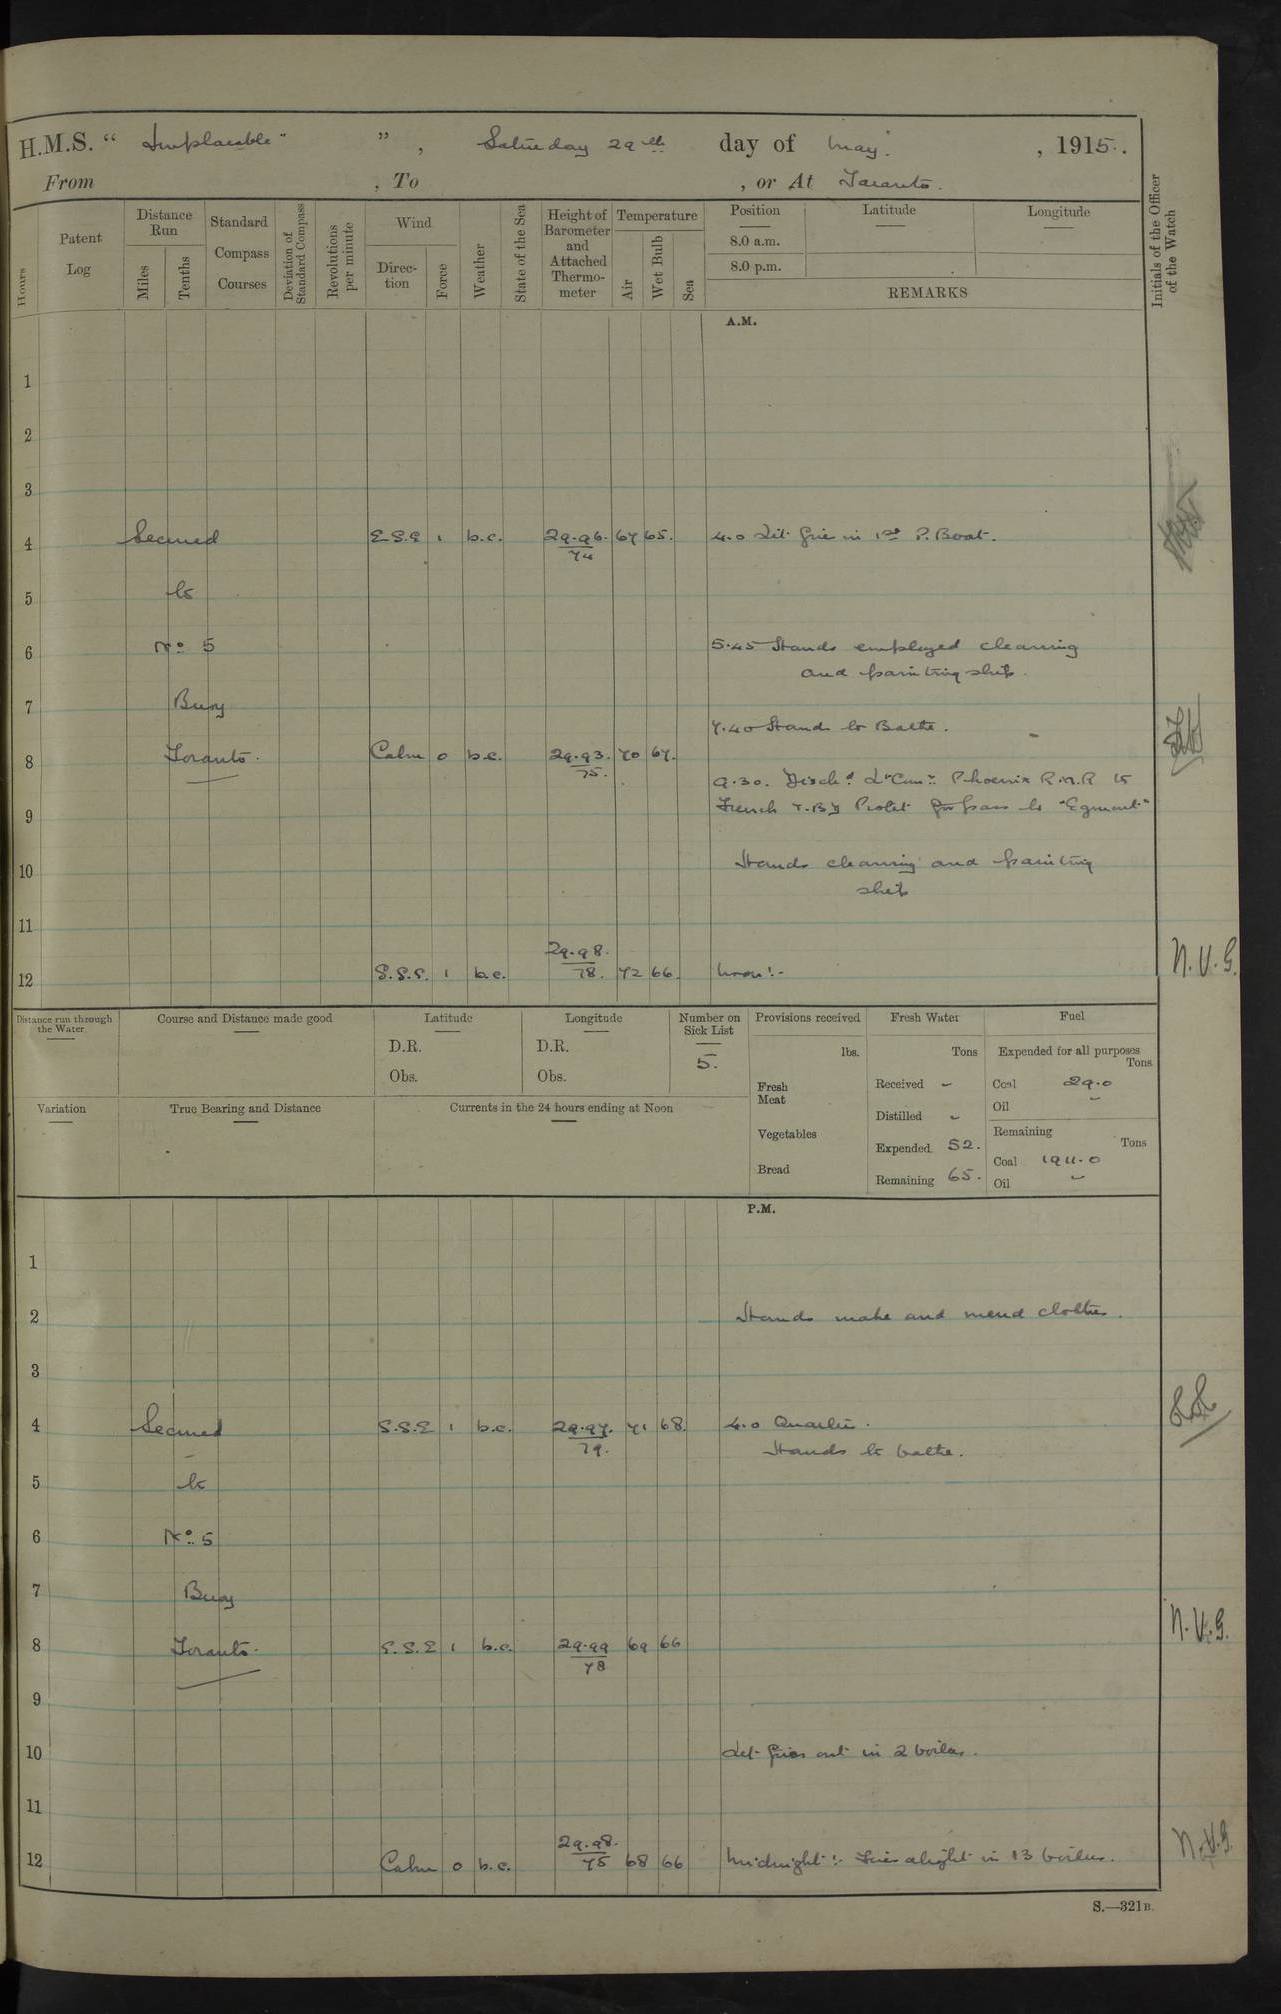 H.M.S. “ Implacable ” , Saturday 29th day of May , 1915.
From , To , or At Taranto.
Hours
Patent Log
Distance Run
Miles
Tenths
Standard Compass Courses
Deviation of Standard Compass
Revolutions per minute
Wind
Direction
Force
Weather
State of the Sea
Height of Barometer and Attached Thermometer
Temperature
Air
Wet Bulb
Sea
Position Latitude Longitude
8.0 a.m.
8.0 p.m.
REMARKS
Initials of the Officer of the Watch
A.M.
1
2
3
4 Secured E.S.E 1 b.c. 29.96. 67 65. 4.0 Lit fire in 1st P. Boat.
74
5 to
6 No 5 5.45 Hands employed cleaning
and painting ship.
7 Buoy
7.40 Hands to Bathe.
8 Taranto. Calm 0 b.c. 29.93. 70 67.
75.
9.30. Disch'd Lt Com: Phoenix R.N.R to
9 French T.B.D Protet for pass to "Egmont"
10 Hands cleaning and painting
ship
11
29.98.
12 S.S.E. 1 b.c. 78. 72 66. Noon:-
N.V.G.
Distance run through the Water
Course and Distance made good
Latitude
D.R.
Obs.
Longitude
D.R.
Obs.
Number on Sick List
5.
Provisions received
lbs.
Fresh Meat
Vegetables
Bread
Fresh Water
Tons
Received -
Distilled -
Expended 52.
Remaining 65.
Fuel
Expended for all purposes
Tons
Coal 29.0
Oil -
Remaining
Tons
Coal 1911.0
Oil -
Variation
True Bearing and Distance
Currents in the 24 hours ending at Noon
P.M.
1
2 Hands make and mend clothes.
3
4 Secured S.S.E 1 b.c. 29.97. 71 68. 4.0 Quarters.
79.
Hands to bathe.
5 to
6 No 5
7 Buoy
8 Taranto. S.S.E 1 b.c. 29.99 69 66
78
N.V.G.
9
10 Let fires out in 2 boilers.
11
29.98.
12 Calm 0 b.c. 75 68 66 Midnight:- Fires alight in 13 boilers.
N.V.G.
S.—321B.